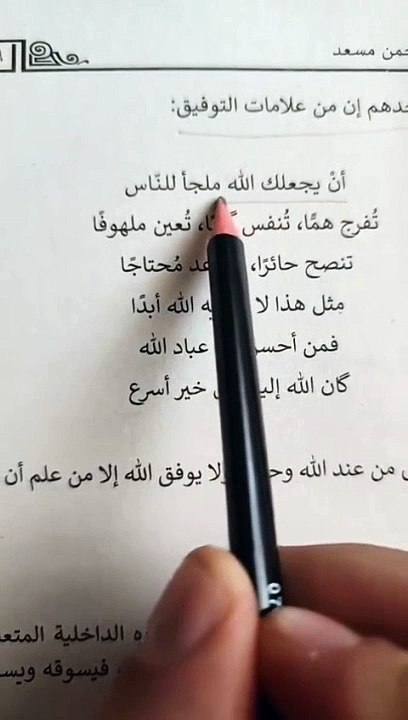 حمن مسعد
حدهم إن من علامات التوفيق:
أنْ يجعلك الله ملجأ للنّاس
تُفرج همًّا، تُنفس، تُعين ملهوفًا
تنصح حائرًا، مُحتاجًا
مِثل هذا لا الله أبدًا
فمن أحسن عباد الله
كان الله خير أسرع
من عند الله ولا يوفق الله إلا من علم أن
الداخلية
فيسوقه